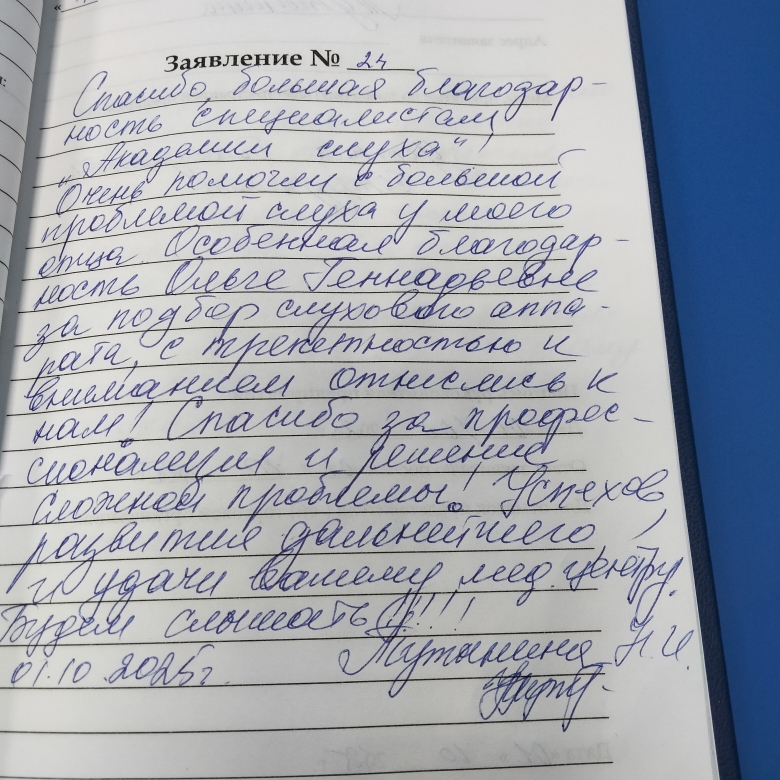 Заявление № 24
Спасибо, большая благодар-
ность специалистам
„Академии слуха“!
Очень помогли с большой
проблемой слуха у моего
отца. Особенная благодар-
ность Ольге Геннадьевне
за подбор слухового аппа-
рата, с трепетностью и
вниманием отнеслись к
нам! Спасибо за профес-
сионализм и решение
сложной проблемы! Успехов,
развития дальнейшего
и удачи вашему мед. центру.
Будем слышать!!!!!
01.10.2025г. Н.И.